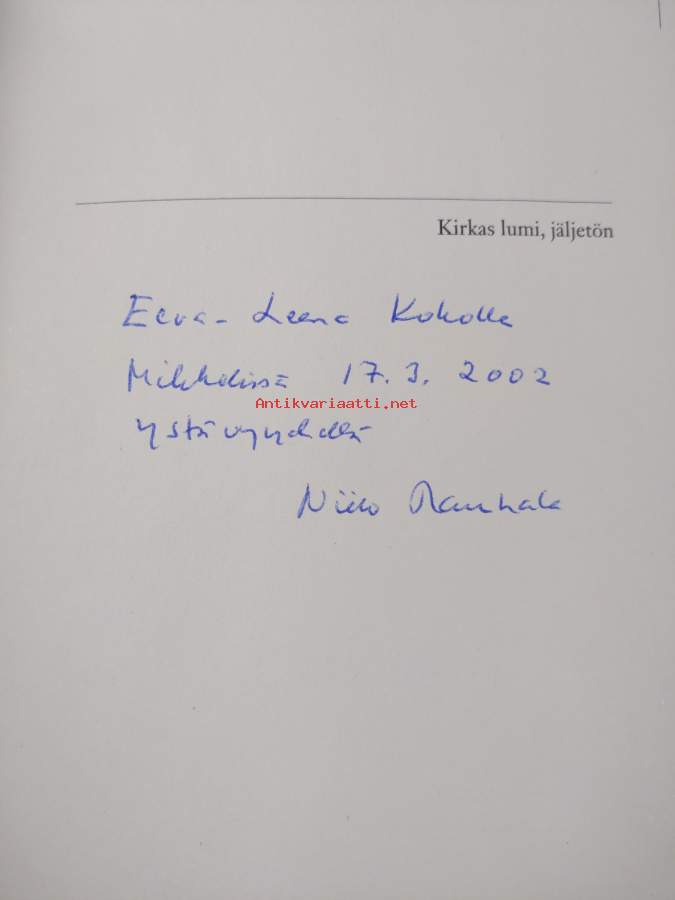 Kirkas lumi, jäljetön
Eeva-Leena Kokolle
Mikkelissä 17.3. 2002
Antikvariaatti.net
ystävyydellä
Niilo Rauhala